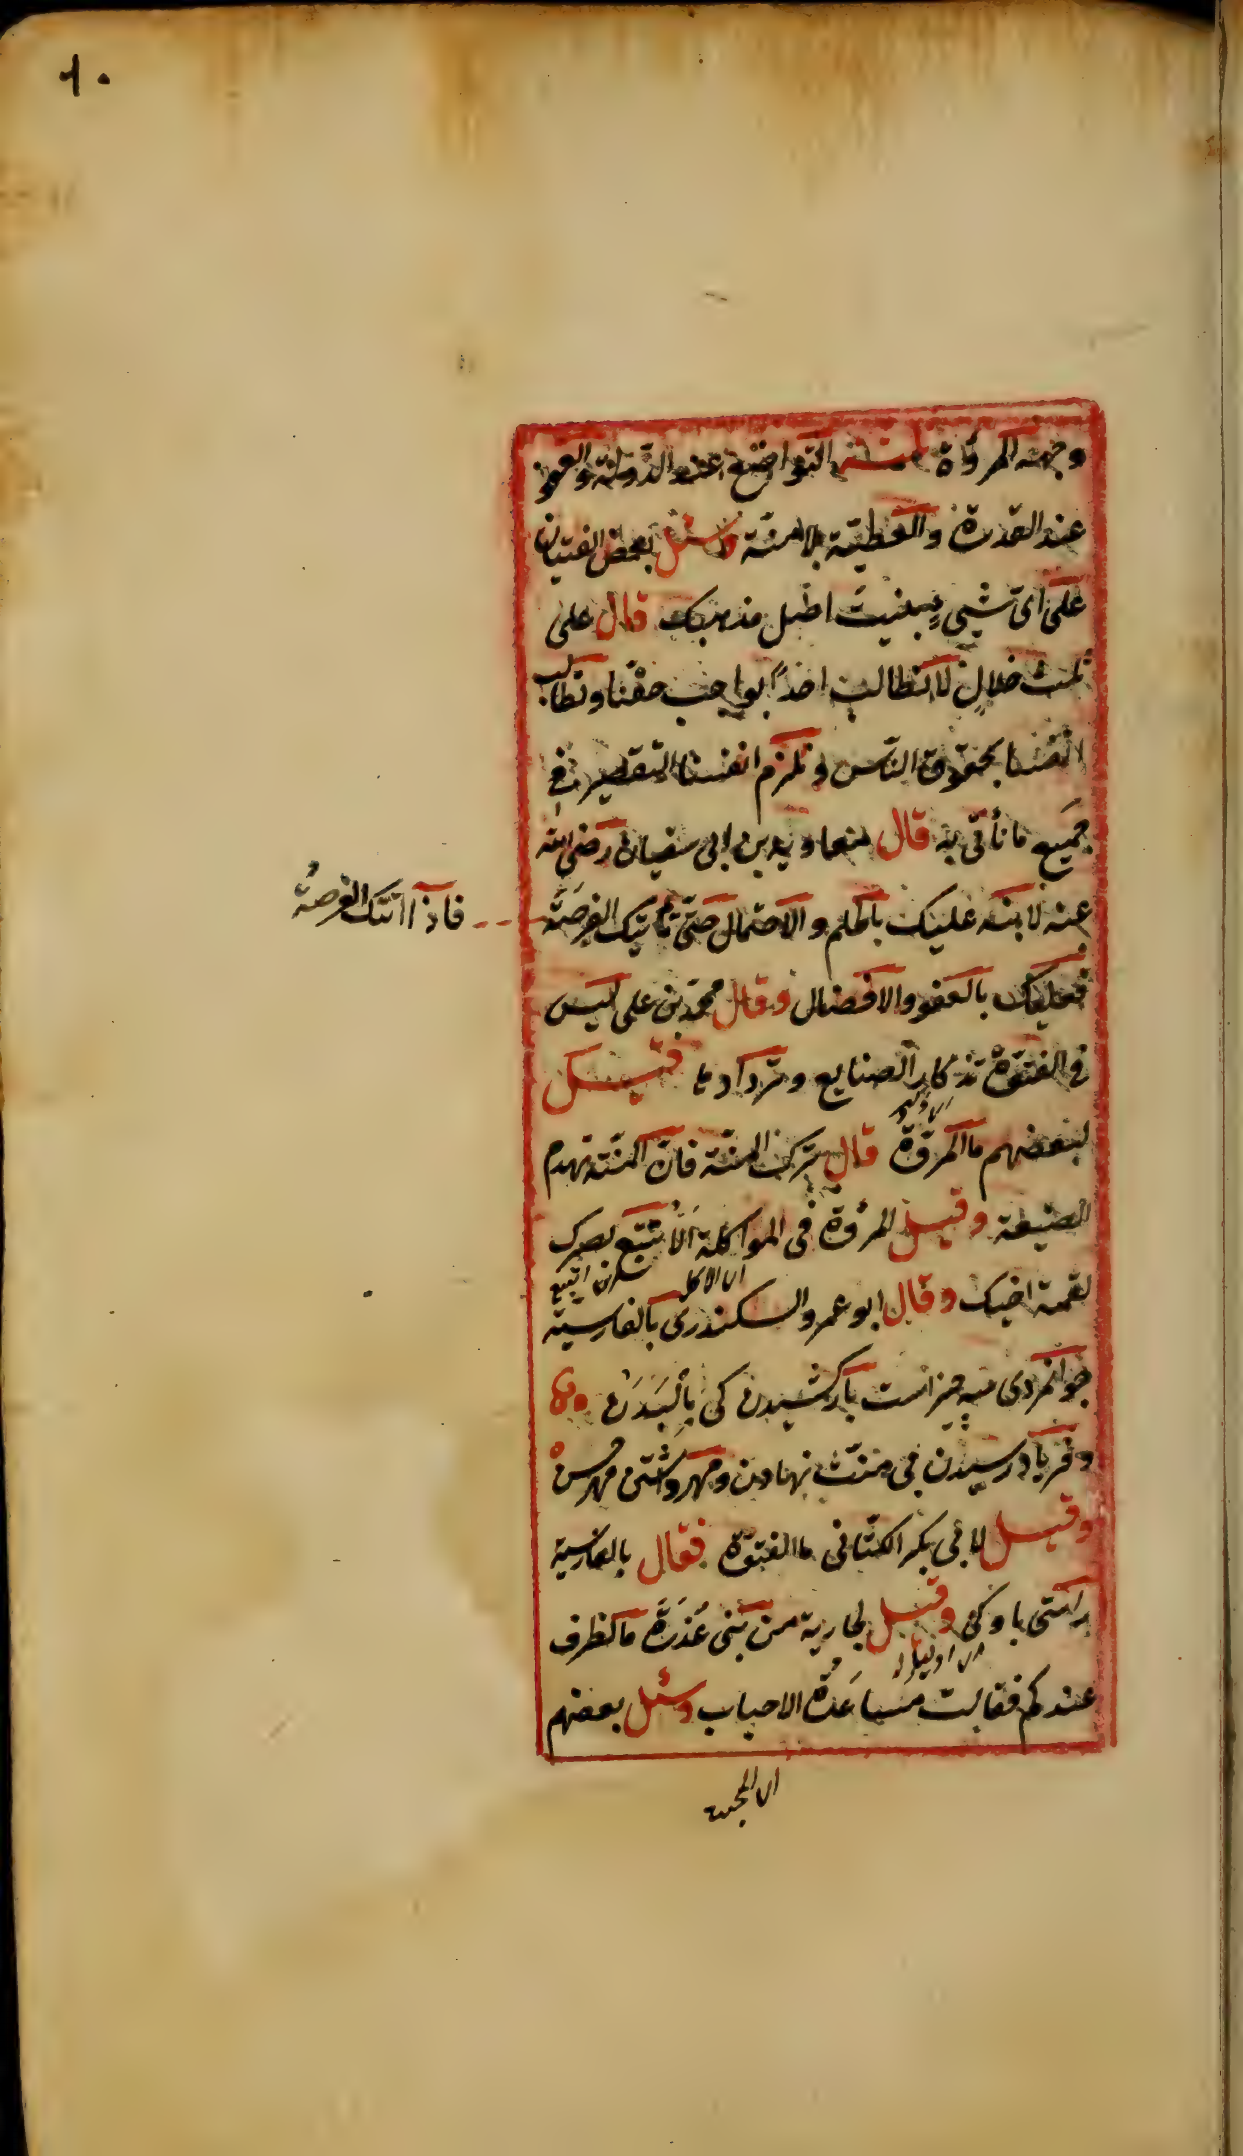 ١٠
وجهه المروّة التواضع عند الدولة والعفو
عند القدرة والعطيّة بلا منّة وسئل بعض الفتيان
على اىّ شيىٍ بنيتَ اصل مذهبك قال على
ثلث خلالٍ لا نطالب احدًا بواجب حقّنا ونطالب
انفسنا بحقوق النّاس ونلزم انفسنا التقصير فى
جميع ما نأتى به قال معاويه بن ابى سفيان رضى الله
عنه لابنه عليك بالحلم والاحتمال حتّى تأتيك الفرصَة
فاذا اتتك الفرصةُ
فعليك بالعفو والافضال وقال محمّد بن على ليس
فى الفتوّة تذكار الصنايع وتردادها قيل
لبعضهم ما المروّة قال ترك المنّة فانّ المنّة تهدم
الصنيعة وقيل المروّة فى المواكلة الّا تتبّع بصرك
اى الاكل
لقمة اخيك وقال ابو عمرو السكندرى بالفارسيّة
جوانمردى سه چيز است بار كشيدن كى
وفرياد رسيدن بى منّت نهادن ومهر داشتن
وقيل لابى بكر الكتّانى ما الفتوّة فقال بالفارسية
راستى با وكى وقيل لجارية من بنى عُذرَةَ ما الظرف
عندكم فقالت مساعَدةُ الاحباب وسئل بعضهم